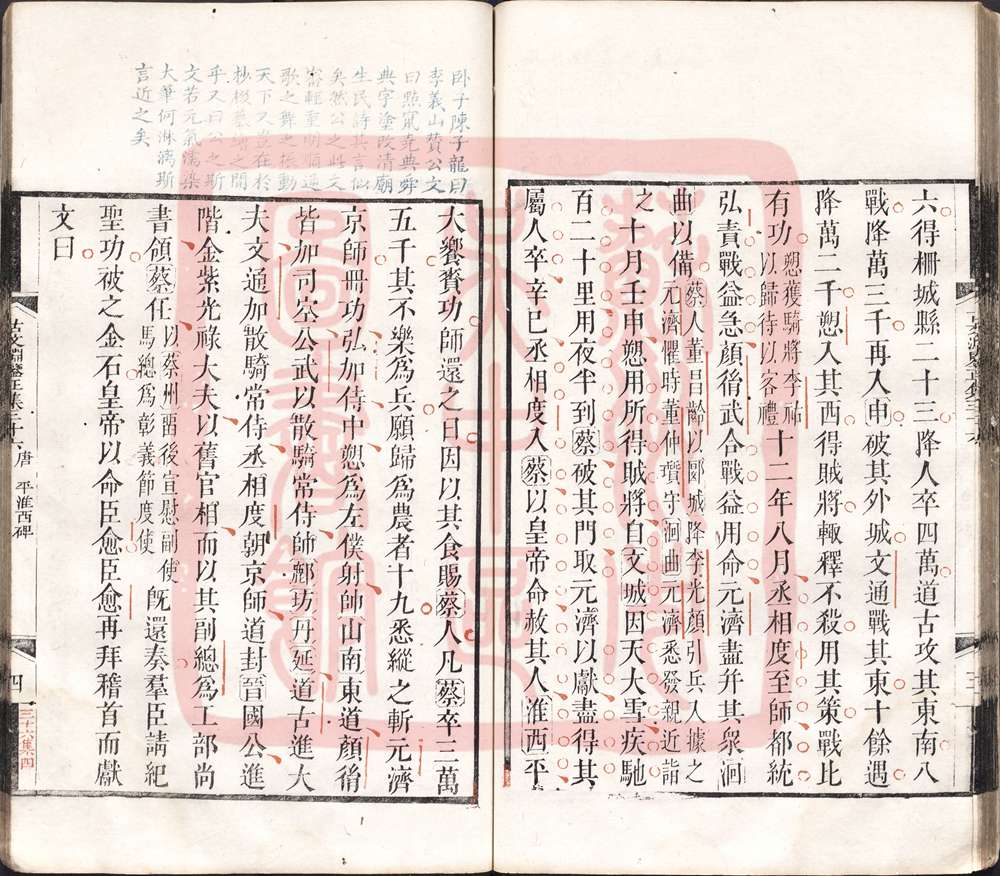 六得柵城縣二十三降人卒四萬道古攻其東南八
戰降萬三千再入申破其外城文通戰其東十餘遇
降萬二千愬入其西得賊將輒釋不殺用其策戰比
有功愬獲騎將李祐以歸待以客禮十二年八月丞相度至師都統
弘責戰益急顏胤武合戰益用命元濟盡并其眾洄
曲以備蔡人董昌齡以郾城降李光顏引兵入據之元濟懼時董仲質守洄曲元濟悉發親近詣
之十月壬申愬用所得賊將自文城因天大雪疾馳
百二十里用夜半到蔡破其門取元濟以獻盡得其
屬人卒辛巳丞相度入蔡以皇帝命赦其人淮西平
臥子陳子龍曰
李義山贊公文
曰點竄堯典舜
典字塗改清廟
生民詩其言似
矣然公之此文
歌之舞之振動
天下又豈在於
乎又曰公之斯
文若元氣濡染
大筆何淋漓斯
言近之矣
大饗賚功師還之日因以其食賜蔡人凡蔡卒三萬
五千其不樂為兵願歸為農者十九悉縱之斬元濟
京師冊功弘加侍中愬為左僕射帥山南東道顏胤
皆加司空公武以散騎常侍帥鄜坊丹延道古進大
夫文通加散騎常侍丞相度朝京師道封晉國公進
階金紫光祿大夫以舊官相而以其副總為工部尚
書領蔡任以蔡州留後宣慰副使馬總為彰義節度使既還奏羣臣請紀
聖功被之金石皇帝以命臣愈臣愈再拜稽首而獻
文曰
唐 平淮西碑
四
三十六集四